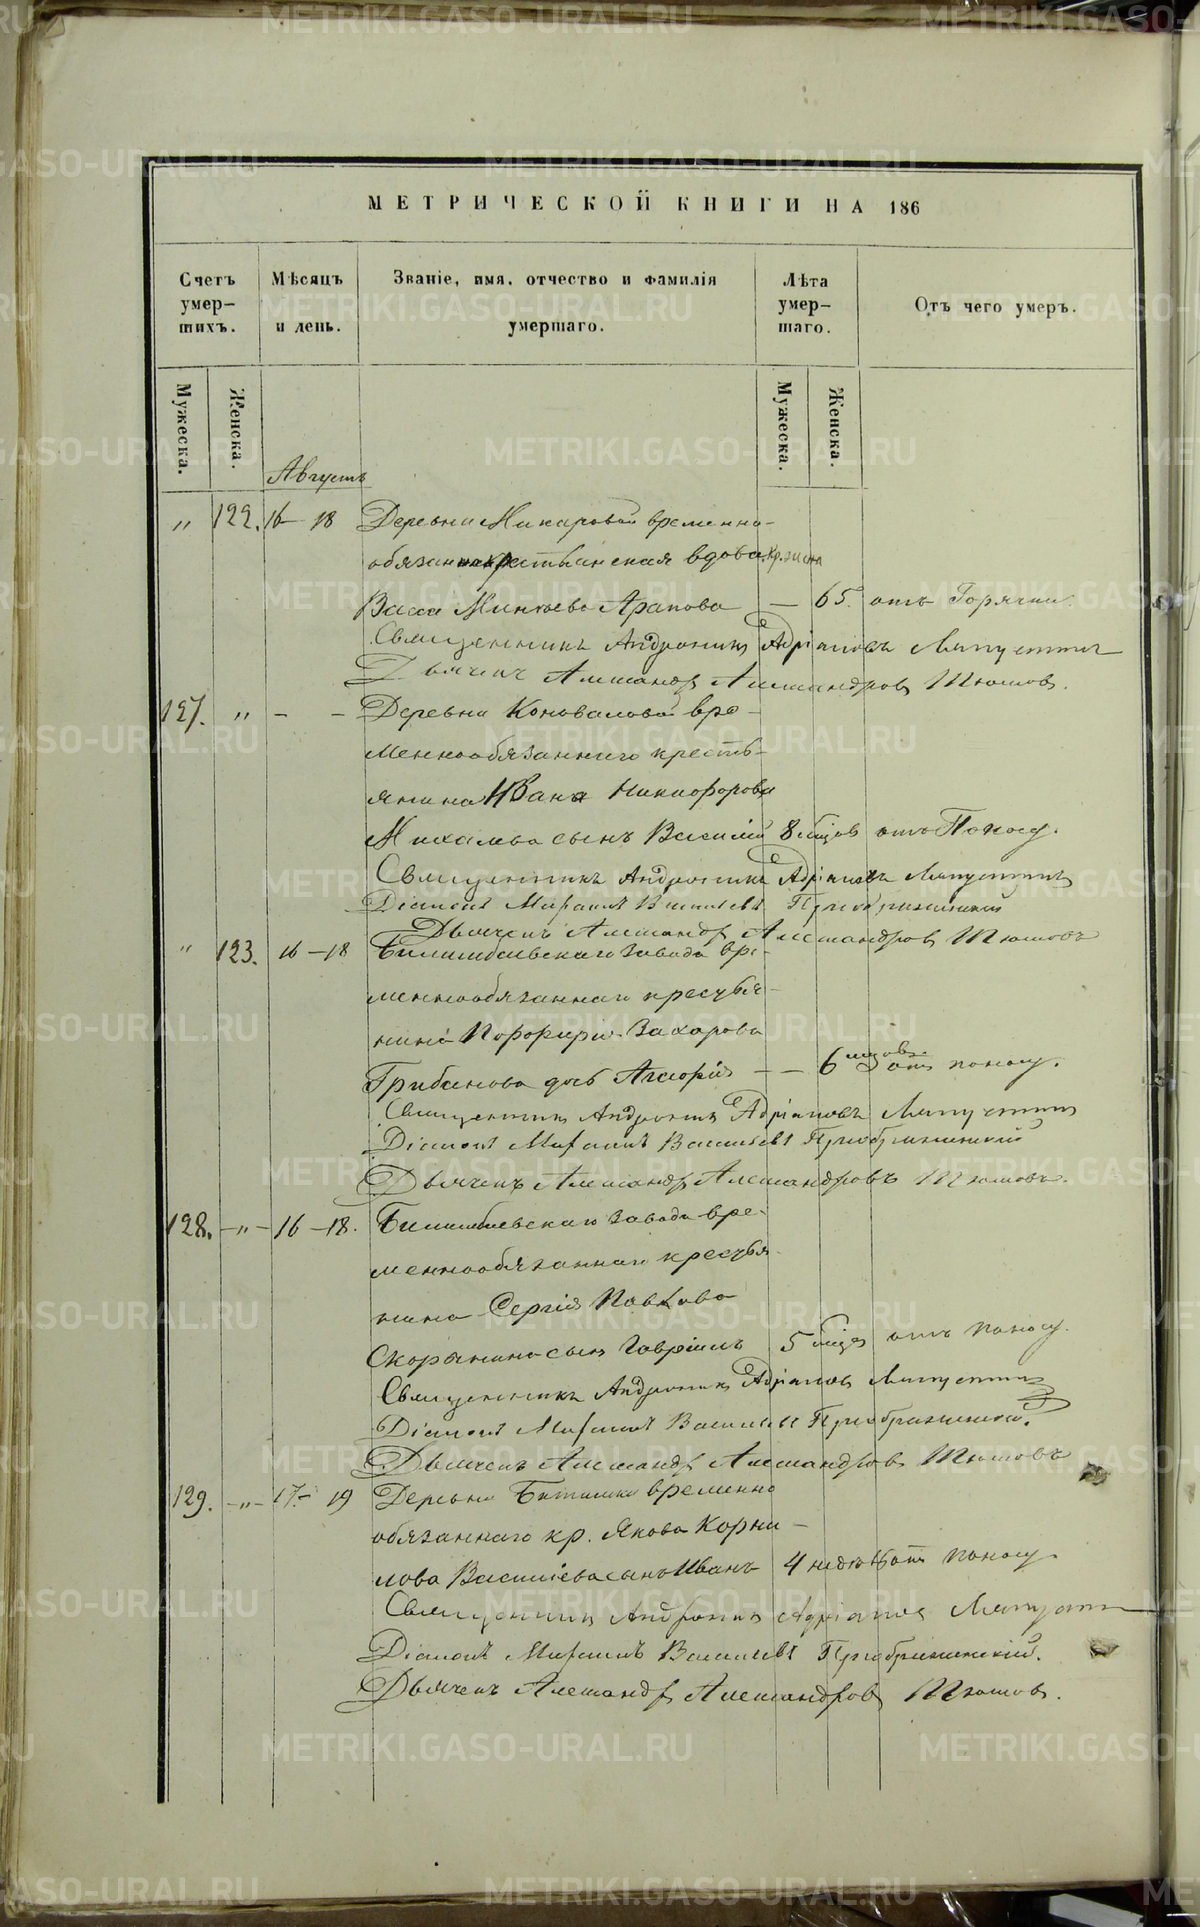 МЕТРИЧЕСКОЙ КНИГИ НА 186
Счетъ умер-шихъ.
Мѣсяцъ и день.
Званіе, имя, отчество и фамилія умершаго.
Лѣта умер-шаго.
Отъ чего умеръ.
Мужеска.
Женска.
Мужеска.
Женска.
Августъ
" 122. 16 – 18 Деревни Макаровой временно-
обязан крестьянская вдова
Васса Минѣева Арапова — 65. отъ Горячки.
Священникъ Андроникъ Адріановъ Ляпустинъ
Дьячекъ Александръ Александровъ Тюшовъ.
127. " - - Деревни Коноваловой вре-
меннообязаннаго кресть-
янина Ивана Никифорова
Михалева сынъ Василій 8 мѣцов отъ Поносу.
Священникъ Андроникъ Адріановъ Ляпустинъ
Діаконъ Василіевъ Преображенскій
Дьячекъ Александръ Александровъ Тюшовъ
" 123. 16 – 18 Билимбаевскаго завода вре-
меннообязаннаго кресчья-
нина Порфирія Захарова
Грибанова дочь — — 6 мцовъ отъ поносу.
Священникъ Андроникъ Адріановъ Ляпустинъ
Діаконъ Василіевъ Преображенскій
Дьячекъ Александръ Александровъ Тюшовъ.
128. – " – 16 – 18. Билимбаевскаго завода вре-
меннообязаннаго кресчья-
нина Сергія Павлова
Скорынина сынъ Гавріилъ 5 мѣцов отъ поносу.
Священникъ Андроникъ Адріановъ Ляпустинъ
Діаконъ Василіевъ Преображенскій.
Дьячекъ Александръ Александровъ Тюшовъ
129. – " – 17. – 19 Деревни Битимки временно
обязаннаго кр. Якова Корни-
лова Василіева сынъ Иванъ 4 недѣль отъ поносу
Священникъ Андроникъ Адріановъ Ляпустинъ
Діаконъ Василіевъ Преображенскій.
Дьячекъ Александръ Александровъ Тюшовъ.
METRIKI.GASO-URAL.RU